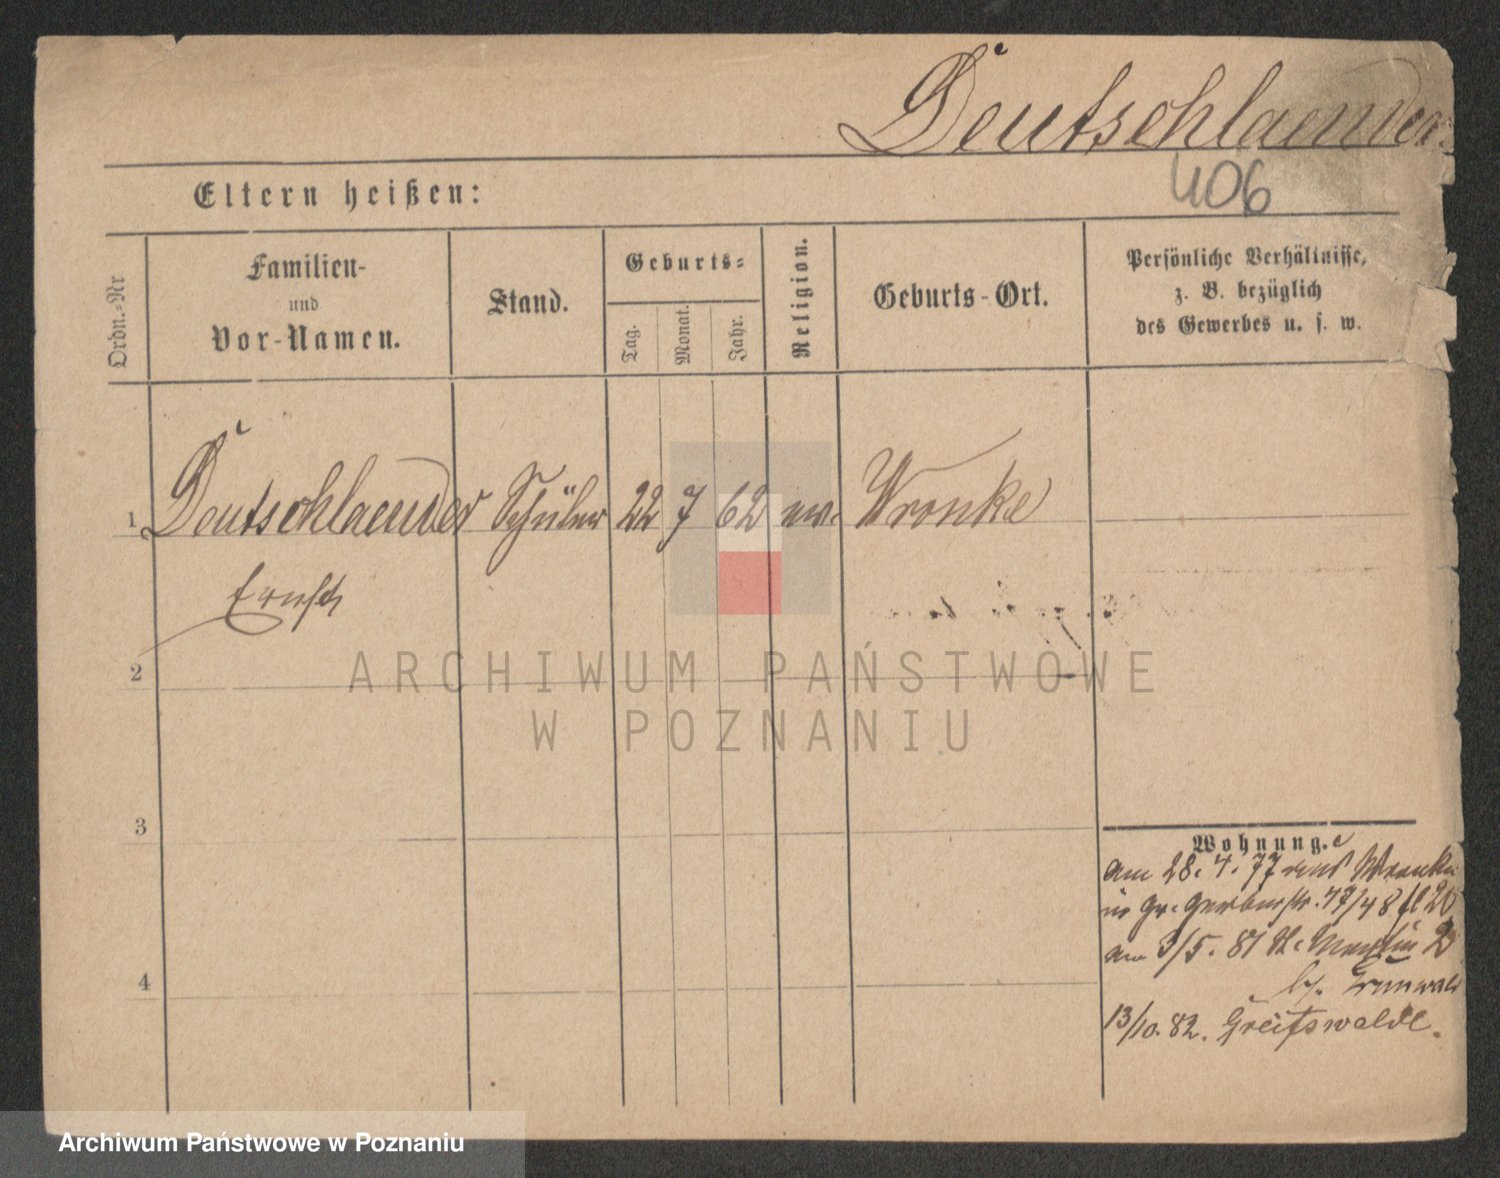 Deutschlaender.
406
Eltern heißen:
Ordn.-Nr
Familien-
und
Vor-Namen.
Stand.
Geburts-
Tag.
Monat.
Jahr.
Religion.
Geburts-Ort.
Persönliche Verhältnisse,
z. B. bezüglich
des Gewerbes u. s. w.
1 Deutschlaender Schüler 22 7 62 ev. Wronke
Ernst
2
ARCHIWUM PAŃSTWOWE
W POZNANIU
3
4
Wohnung.
am 28. 4. 77 aus Wronke
in Gr. Gerberstr. 47/48
am 3/5. 81 St. Martin
b/. Grunwald
13/10. 82. Greifswalde.
Archiwum Państwowe w Poznaniu